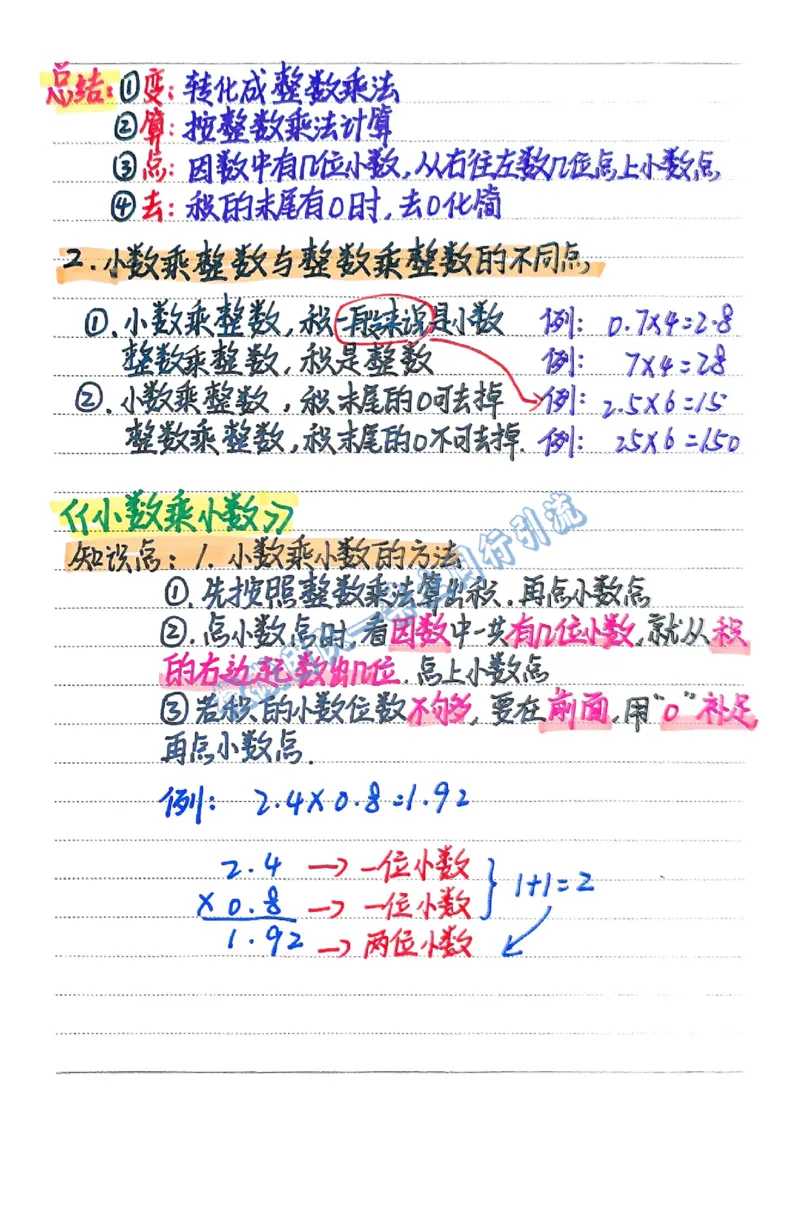 总结:①变:转化成整数乘法
②算:按整数乘法计算
③点:因数中有几位小数,从右往左数几位点上小数点
④去:积的末尾有0时,去0化简
2.小数乘整数与整数乘整数的不同点
①.小数乘整数,积一般来说是小数 例: 0.7×4=2.8
整数乘整数,积是整数 例: 7×4=28
②.小数乘整数,积末尾的0可去掉 例: 2.5×6=15
整数乘整数,积末尾的0不可去掉. 例: 25×6=150
《小数乘小数》
知识点:1.小数乘小数的方法
①.先按照整数乘法算出积,再点小数点
②.点小数点时,看因数中一共有几位小数,就从积
的右边起数出几位.点上小数点
③若积的小数位数不够多,要在前面,用"0"补足
再点小数点.
例: 2.4×0.8=1.92
2.4 → 一位小数
×0.8 → 一位小数 } 1+1=2
1.92 → 两位小数